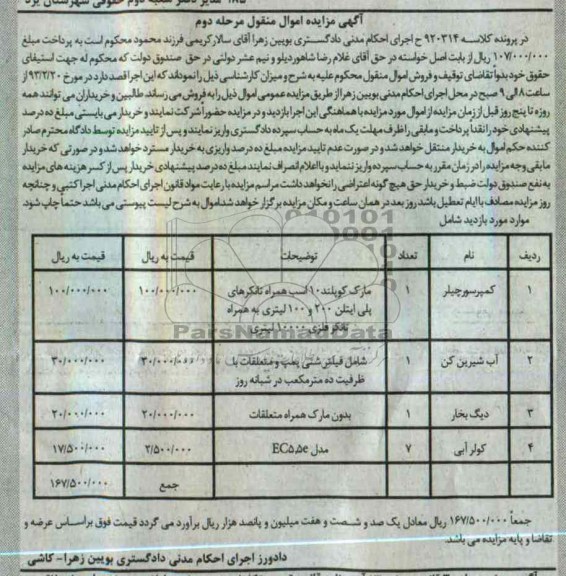 آگهی مزایده اموال منقول مرحله دوم
در پرونده کلاسه ۹۲۰۳۱۴ ح اجرای احکام مدنی دادگستری بویین زهرا آقای سالار کریمی فرزند محمود محکوم است به پرداخت مبلغ
۱۰۷/۰۰۰/۰۰۰ ریال از بابت اصل خواسته در حق آقای غلام رضا شاهوردیلو و نیم عشر دولتی در حق صندوق دولت که محکوم له جهت استیفای
حقوق خود بدوا تقاضای توقیف و فروش اموال منقول محکوم علیه به شرح و میزان کارشناسی ذیل را نموداند که این اجرا قصد دارد در مورخ ۹۳/۲/۲۰ از
ساعت ۸ الی ۹ صبح در محل اجرای احکام مدنی بویین زهرا از طریق مزایده عمومی اموال ذیل را به فروش می رساند. طالبین و خریداران می توانند همه
روزه تا پنج روز قبل از زمان مزایده از اموال مورد مزایده با هماهنگی این اجرا بازدید و در مزایده حضورا شرکت نمایند و خریدار می بایستی مبلغ ده درصد
پیشنهادی خود را نقدا پرداخت و مابقی را ظرف مهلت یک ماه به حساب سپرده دادگستری واریز نمایند و پس از تایید مزایده توسط دادگاه محترم صادر
کننده حکم اموال به خریدار منتقل خواهد شد و در صورت عدم تایید مزایده مبلغ ده درصد واریزی به خریدار مسترد خواهد شد و در صورتی که خریدار
مابقی وجه مزایده را در زمان مقرر به حساب سپرده واریز ننماید و یا اعلام انصراف نمایند مبلغ ده درصد پیشنهادی خریدار پس از کسر هزینه های مزایده
به نفع صندوق دولت ضبط و خریدار حق هیچ گونه اعتراضی را نخواهد داشت مراسم مزایده با رعایت مواد قانون اجرای احکام مدنی اجرا کتبی و چنانچه
روز مزایده مصادف با ایام تعطیل باشد روز بعد در همان ساعت و مکان مزایده برگزار خواهد شد اموال به شرح لیست پیوستی می باشد حتما چاپ شود.
موارد مورد بازدید شامل
ردیف نام تعداد توضیحات قیمت به ریال قیمت به ریال
۱ کمپرسور چیلر ۱ مارک کوپلند ۱۰ اسب همراه تانکرهای ۱۰۰/۰۰۰/۰۰۰ ۱۰۰/۰۰۰/۰۰۰
پلی ایتلن ۲۰۰ و ۱۰۰ لیتری به همراه
تانکر فلزی ۱۰۰۰۰ لیتری
ParsNamadData
۲ آب شیرین کن ۱ شامل فیلتر شنی پمپ و متعلقات با ۳۰/۰۰۰/۰۰۰ ۳۰/۰۰۰/۰۰۰
ظرفیت ده مترمکعب در شبانه روز
۳ دیگ بخار ۱ بدون مارک همراه متعلقات ۲۰/۰۰۰/۰۰۰ ۲۰/۰۰۰/۰۰۰
۴ کولر آبی ۷ مدل EC۵,۵e ۲/۵۰۰/۰۰۰ ۱۷/۵۰۰/۰۰۰
جمع ۱۶۷/۵۰۰/۰۰۰
جمعا ۱۶۷/۵۰۰/۰۰۰ ریال معادل یک صد و شصت و هفت میلیون و پانصد هزار ریال برآورد می گردد قیمت فوق براساس عرضه و
تقاضا و پایه مزایده می باشد.
دادورز اجرای احکام مدنی دادگستری بویین زهرا- کاشی